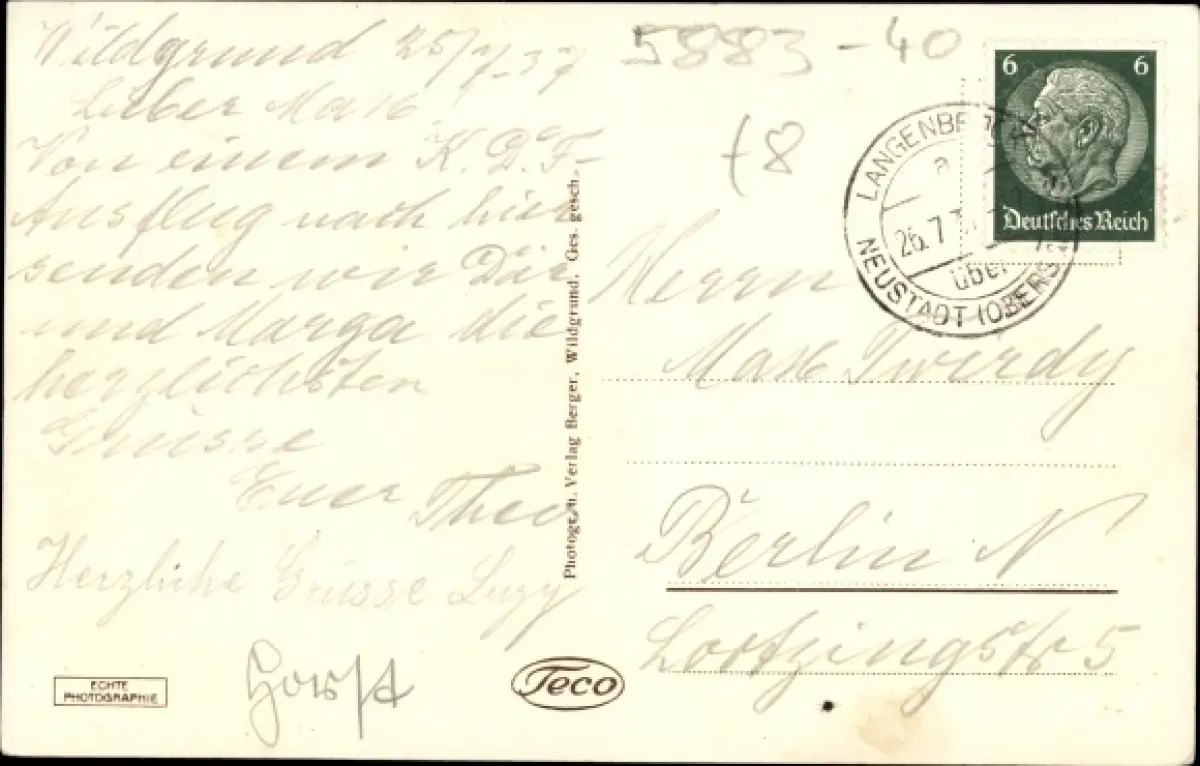 Wildgrund 25/7.37
Lieber Max
Von einem K.D.F-
Ausflug nach hier
senden wir Dir
und Marga die
herzlichsten
Grüsse
Euer Theo
Herzliche Grüsse Luzy
Horst
ECHTE
PHOTOGRAPHIE
Teco
Photogr. u. Verlag Berger, Wildgrund. Ges. gesch.
5883-40
+8
6 6
Deutsches Reich
LANGENBRÜCK
a
26.7
über
NEUSTADT (OBERS
Herrn
Max Twerdy
Berlin N
Lortzingstr 5